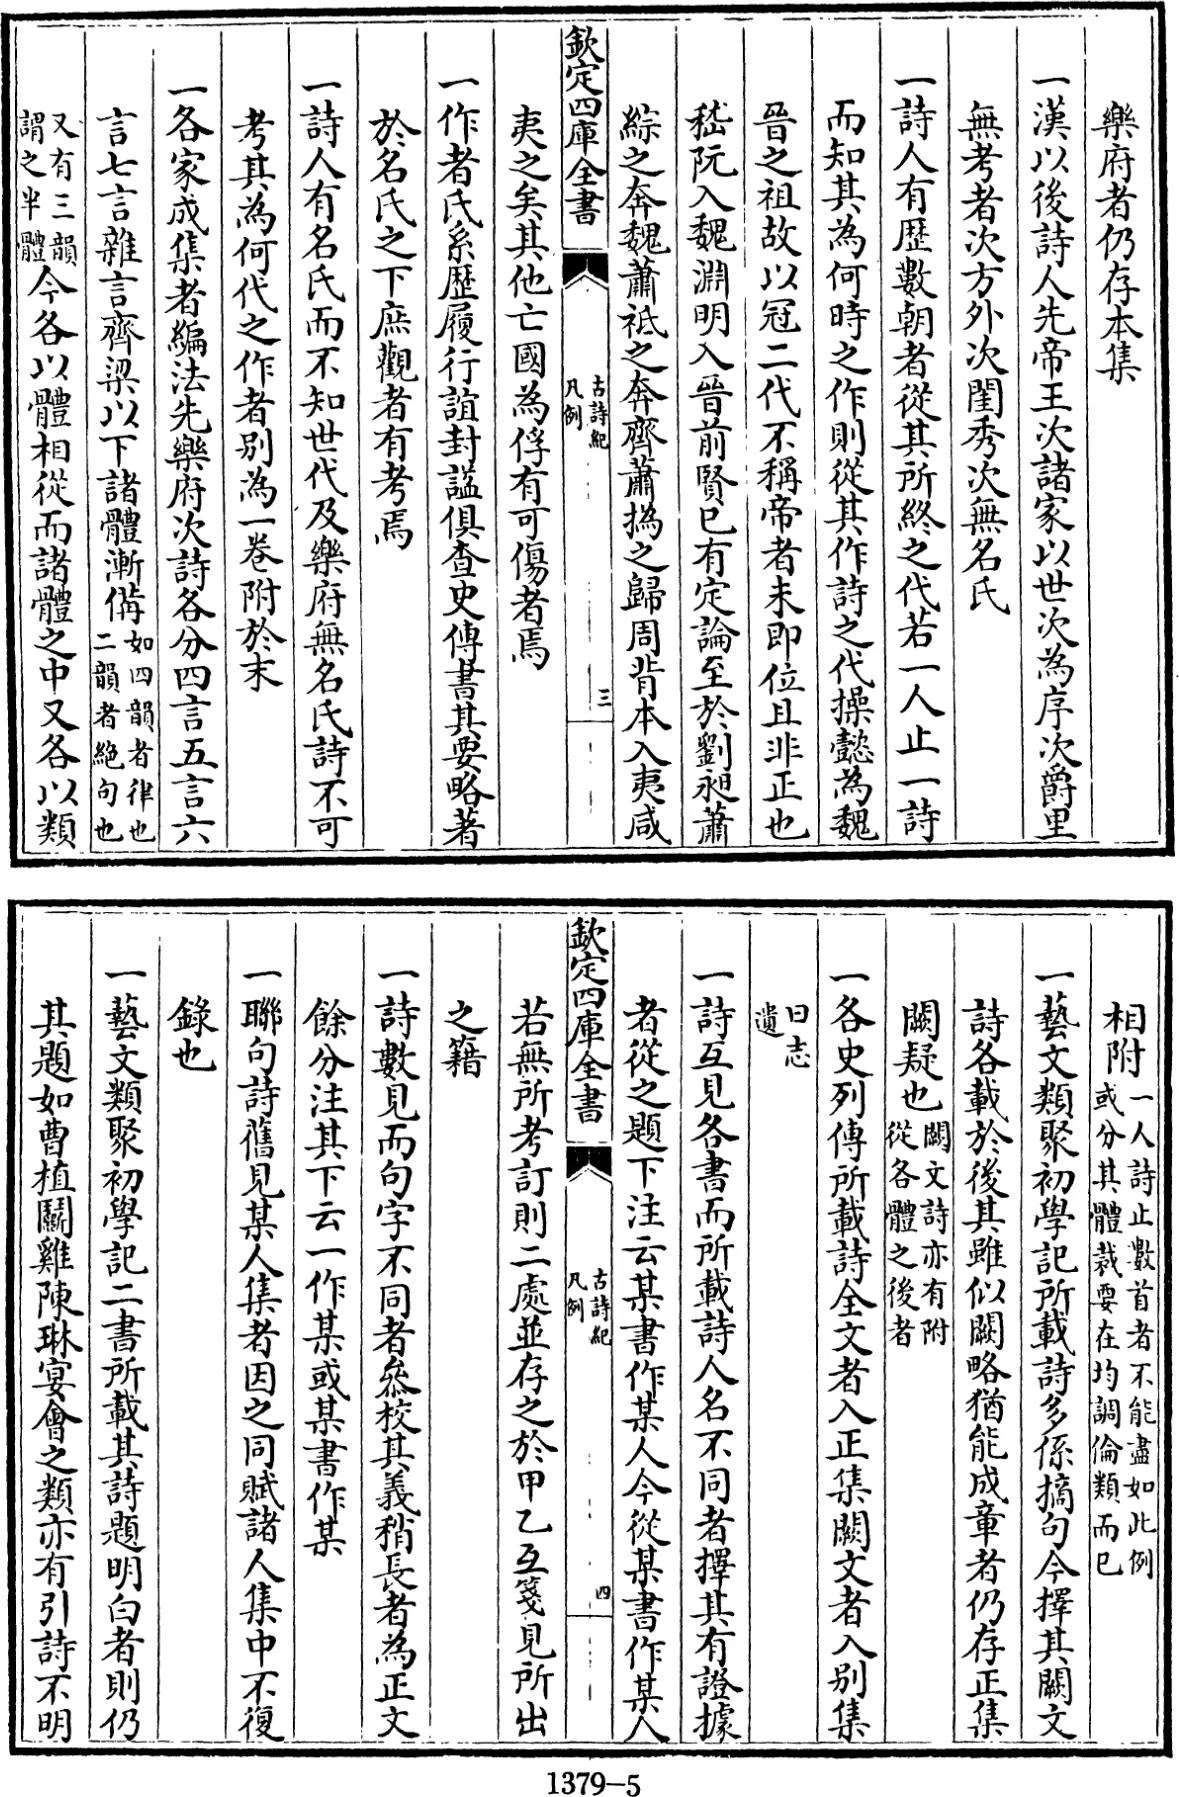 樂府者仍存本集
一漢以後詩人先帝王次諸家以世次為序次爵里
無考者次方外次閨秀次無名氏
一詩人有歷數朝者從其所終之代若一人止一詩
而知其為何時之作則從其作詩之代操懿為魏
晉之祖故以冠二代不稱帝者未即位且非正也
嵇阮入魏淵明入晉前賢已有定論至於劉昶蕭
綜之奔魏蕭祗之奔齊蕭撝之歸周背本入夷咸
欽定四庫全書
古詩紀
凡例
三
夷之矣其他亡國為俘有可傷者焉
一作者氏系歷履行誼封諡俱查史傳書其要略著
於名氏之下庶觀者有考焉
一詩人有名氏而不知世代及樂府無名氏詩不可
考其為何代之作者別為一卷附於末
一各家成集者編法先樂府次詩各分四言五言六
言七言雜言齊梁以下諸體漸備如四韻者律也
二韻者絶句也
又有三韻
謂之半體今各以體相從而諸體之中又各以類
相附一人詩止數首者不能盡如此例
或分其體裁要在均調倫類而已
一藝文類聚初學記所載詩多係摘句今擇其闕文
詩各載於後其雖似闕略猶能成章者仍存正集
闕疑也闕文詩亦有附
從各體之後者
一各史列傳所載詩全文者入正集闕文者入別集
曰志
遺
一詩互見各書而所載詩人名不同者擇其有證據
者從之題下注云某書作某人今從某書作某人
欽定四庫全書
古詩紀
凡例
四
若無所考訂則二處並存之於甲乙互箋見所出
之籍
一詩數見而句字不同者叅校其義稍長者為正文
餘分注其下云一作某或某書作某
一聯句詩舊見某人集者因之同賦諸人集中不復
錄也
一藝文類聚初學記二書所載其詩題明白者則仍
其題如曹植鬭雞陳琳宴會之類亦有引詩不明
1379-5